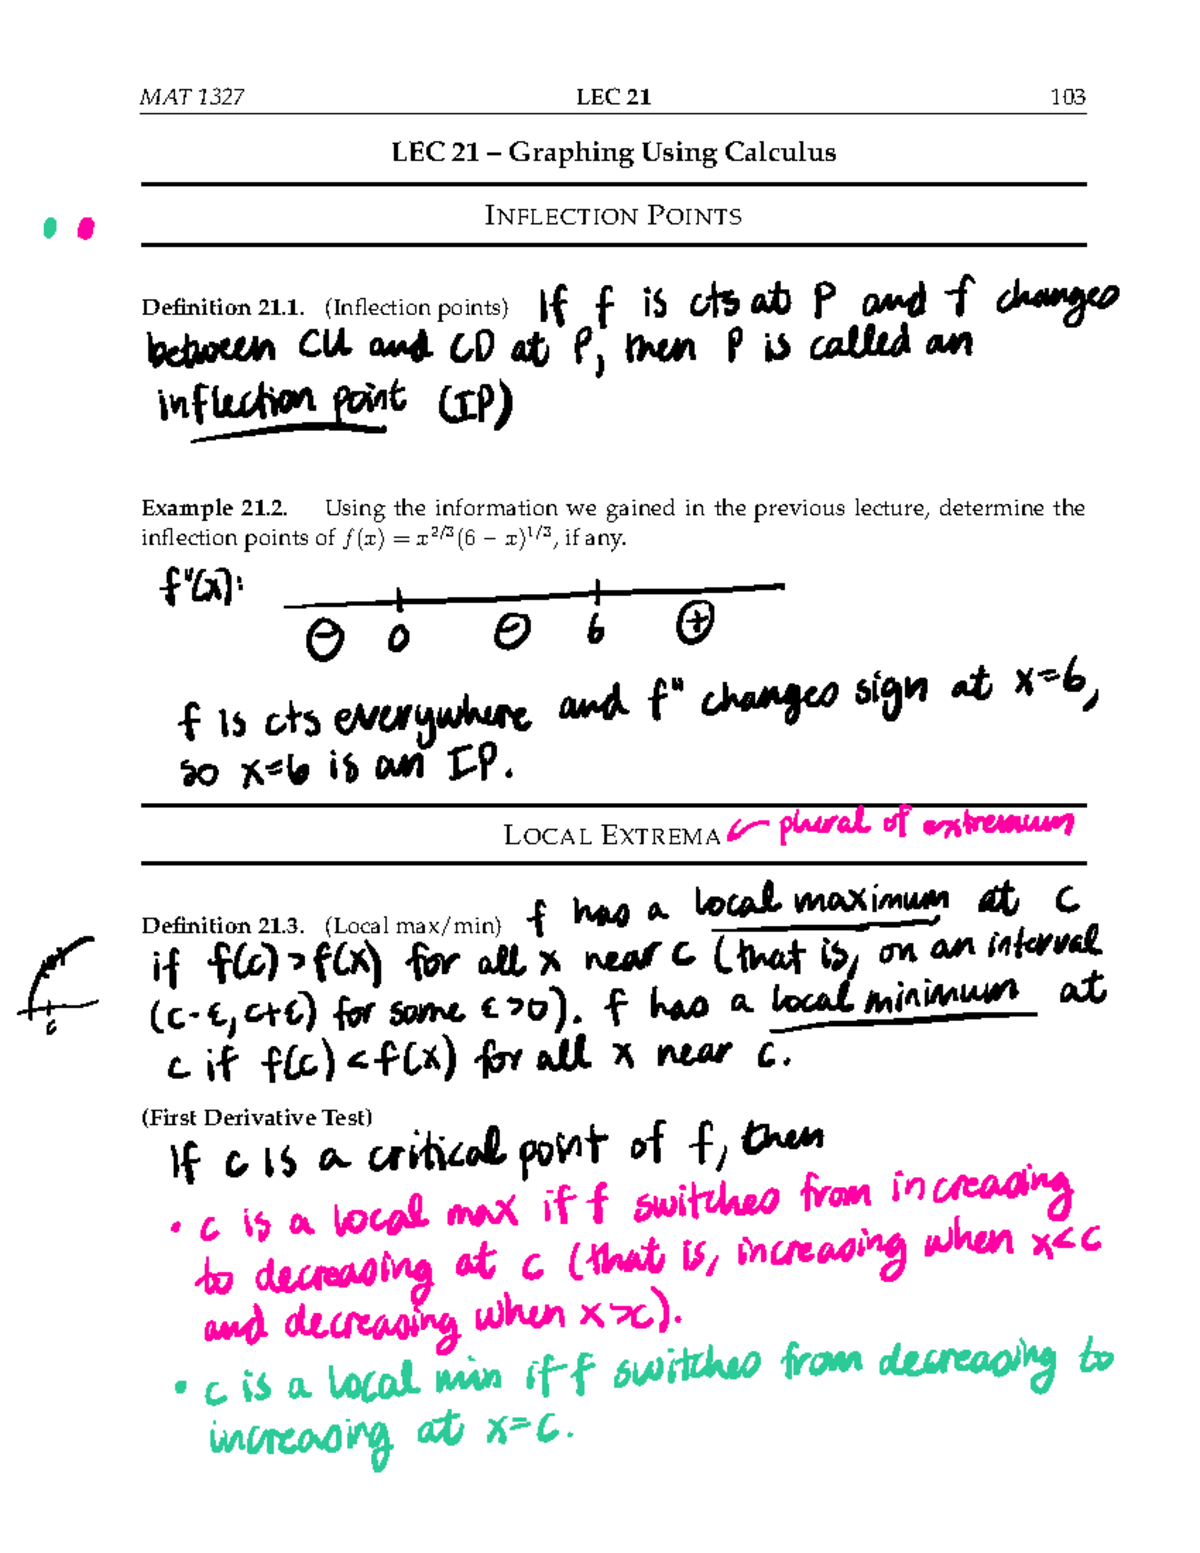 MAT 1327 LEC 21 103
LEC 21 – Graphing Using Calculus
INFLECTION POINTS
Definition 21.1. (Inflection points) If f is cts at P and f changes
between CU and CD at P, then P is called an
inflection point (IP)
Example 21.2. Using the information we gained in the previous lecture, determine the
inflection points of f(x) = x^{2/3}(6 − x)^{1/3}, if any.
f"(x):
⊖ 0 ⊖ 6 ⊕
f is cts everywhere and f" changes sign at x=6,
so x=6 is an IP.
LOCAL EXTREMA ← plural of extremum
Definition 21.3. (Local max/min) f has a local maximum at c
if f(c)>f(x) for all x near c (that is, on an interval
(c-ε, c+ε) for some ε>0). f has a local minimum at
c
c if f(c)<f(x) for all x near c.
(First Derivative Test)
If c is a critical point of f, then
• c is a local max if f switches from increasing
to decreasing at c (that is, increasing when x<c
and decreasing when x>c).
• c is a local min if f switches from decreasing to
increasing at x=c.